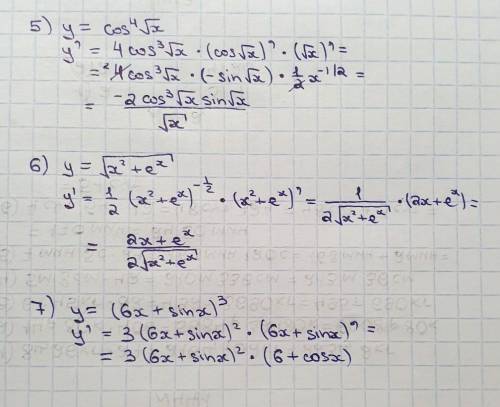 5) y = cos⁴√x
y' = 4cos³√x · (cos√x)' · (√x)' =
= ²4cos³√x · (-sin√x) · 1/2 x^(-1/2) =
= (-2cos³√x sin√x)/√x
6) y = √(x² + eˣ)
y' = 1/2 (x² + eˣ)^(-1/2) · (x² + eˣ)' = 1/(2√(x² + eˣ)) · (2x + eˣ) =
= (2x + eˣ)/(2√(x² + eˣ))
7) y = (6x + sinx)³
y' = 3(6x + sinx)² · (6x + sinx)' =
= 3(6x + sinx)² · (6 + cosx)